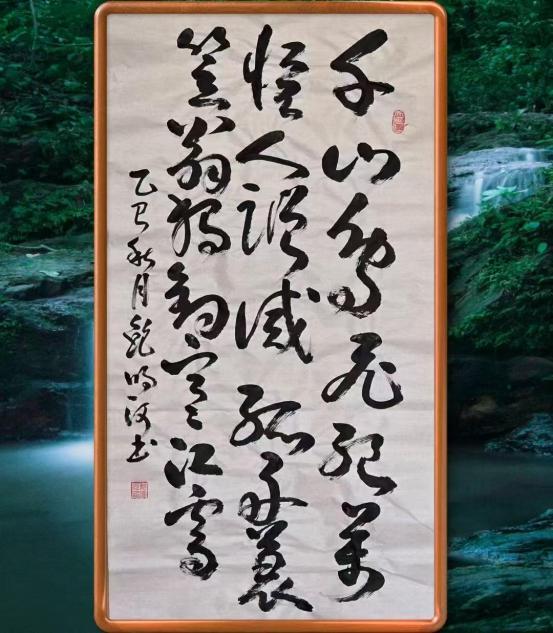 千山鳥飛絕萬
徑人蹤滅孤舟蓑
笠翁獨釣寒江雪
乙巳秋月 书